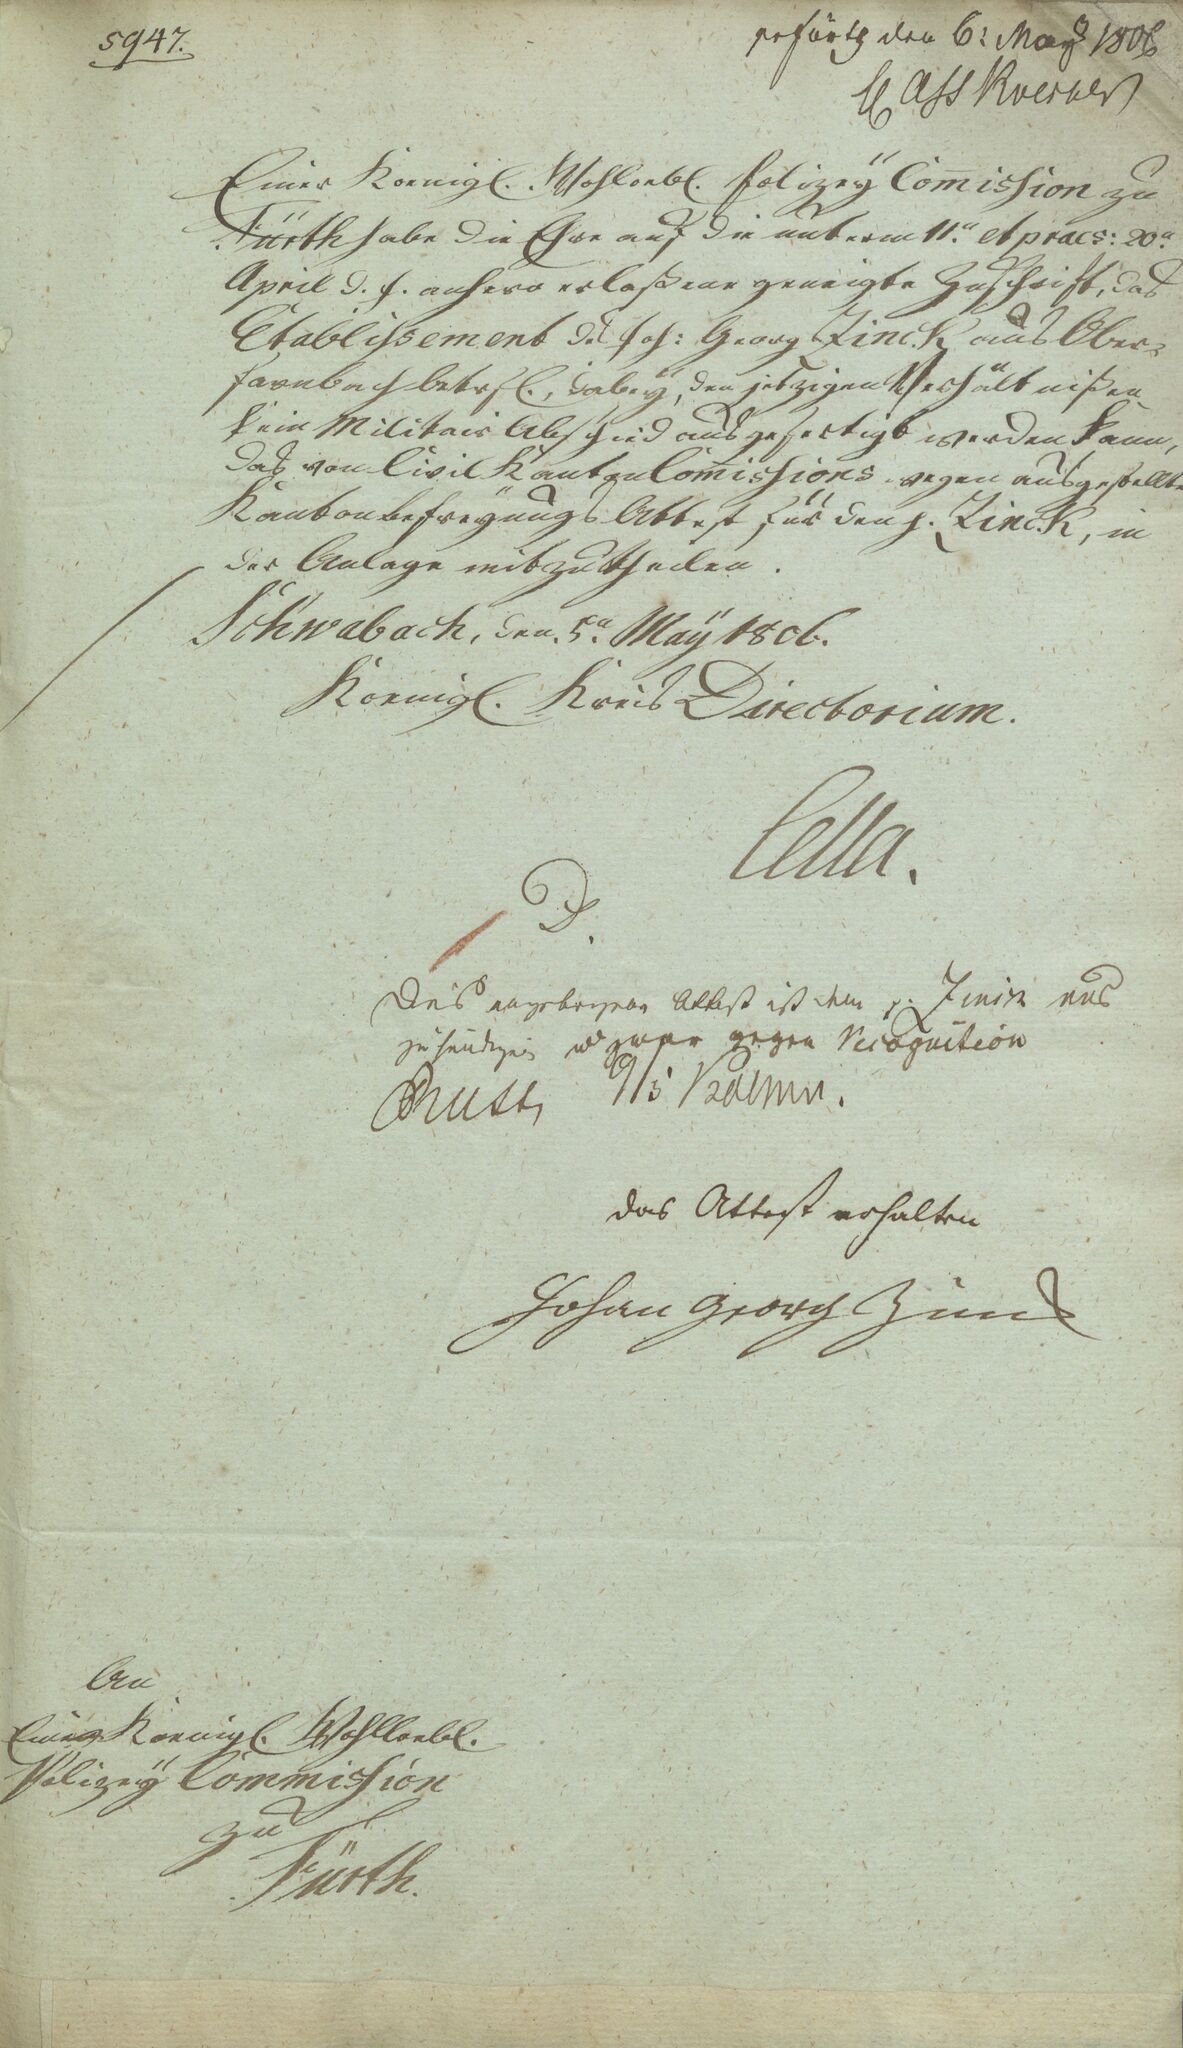 5947.
den 6: May 1806
Einer Koenigl. Wohlloebl. Polizeÿ Commission zu
Fürth habe die Ehre auf die unterm 11.n et praes: 20.n
April d. J. anhero erlaßene geneigte Zuschrift, das
Etablissement des Joh: Georg Zinck aus Ober-
farnbach betrfl., dabeÿ, den jetzigen Verhältnißen
kein Militair Abschied ausgefertigt werden kann,
das von Civil Kanton Commissions wegen ausgestellte
Kantonbefreÿungs Attest für den p. Zinck, in
der Anlage mitzutheilen.
Schwabach, den 5.n Maÿ 1806.
Koenigl. Kreis Directorium.
Cella.
D.
Das angebogene Attest ist dem p. Zinck aus
zuhändigen u zwar gegen Recognition
das Attest erhalten
Johan Georg Zinck
An
Eine Koenigl. Wohlloebl.
Polizeÿ Commission
zu
Fürth.